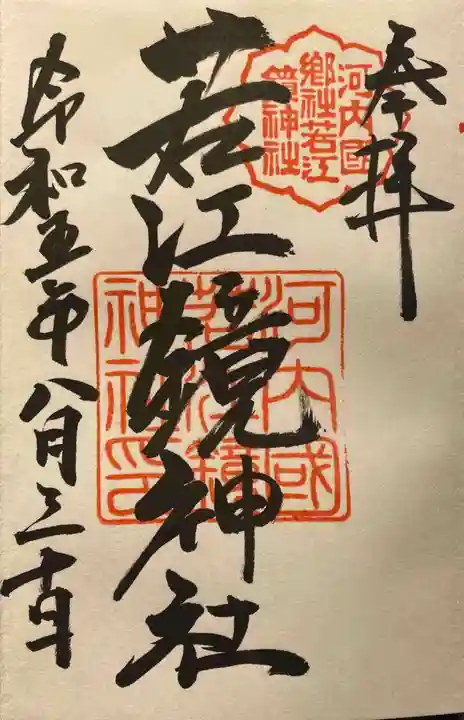 奉拝
河内國
郷社若江
鏡神社
若江鏡神社
河内國
若江鏡
神社印
令和五年八月三十日